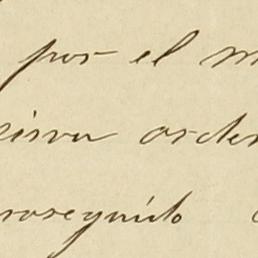 por el m
sirva orden
roseguido